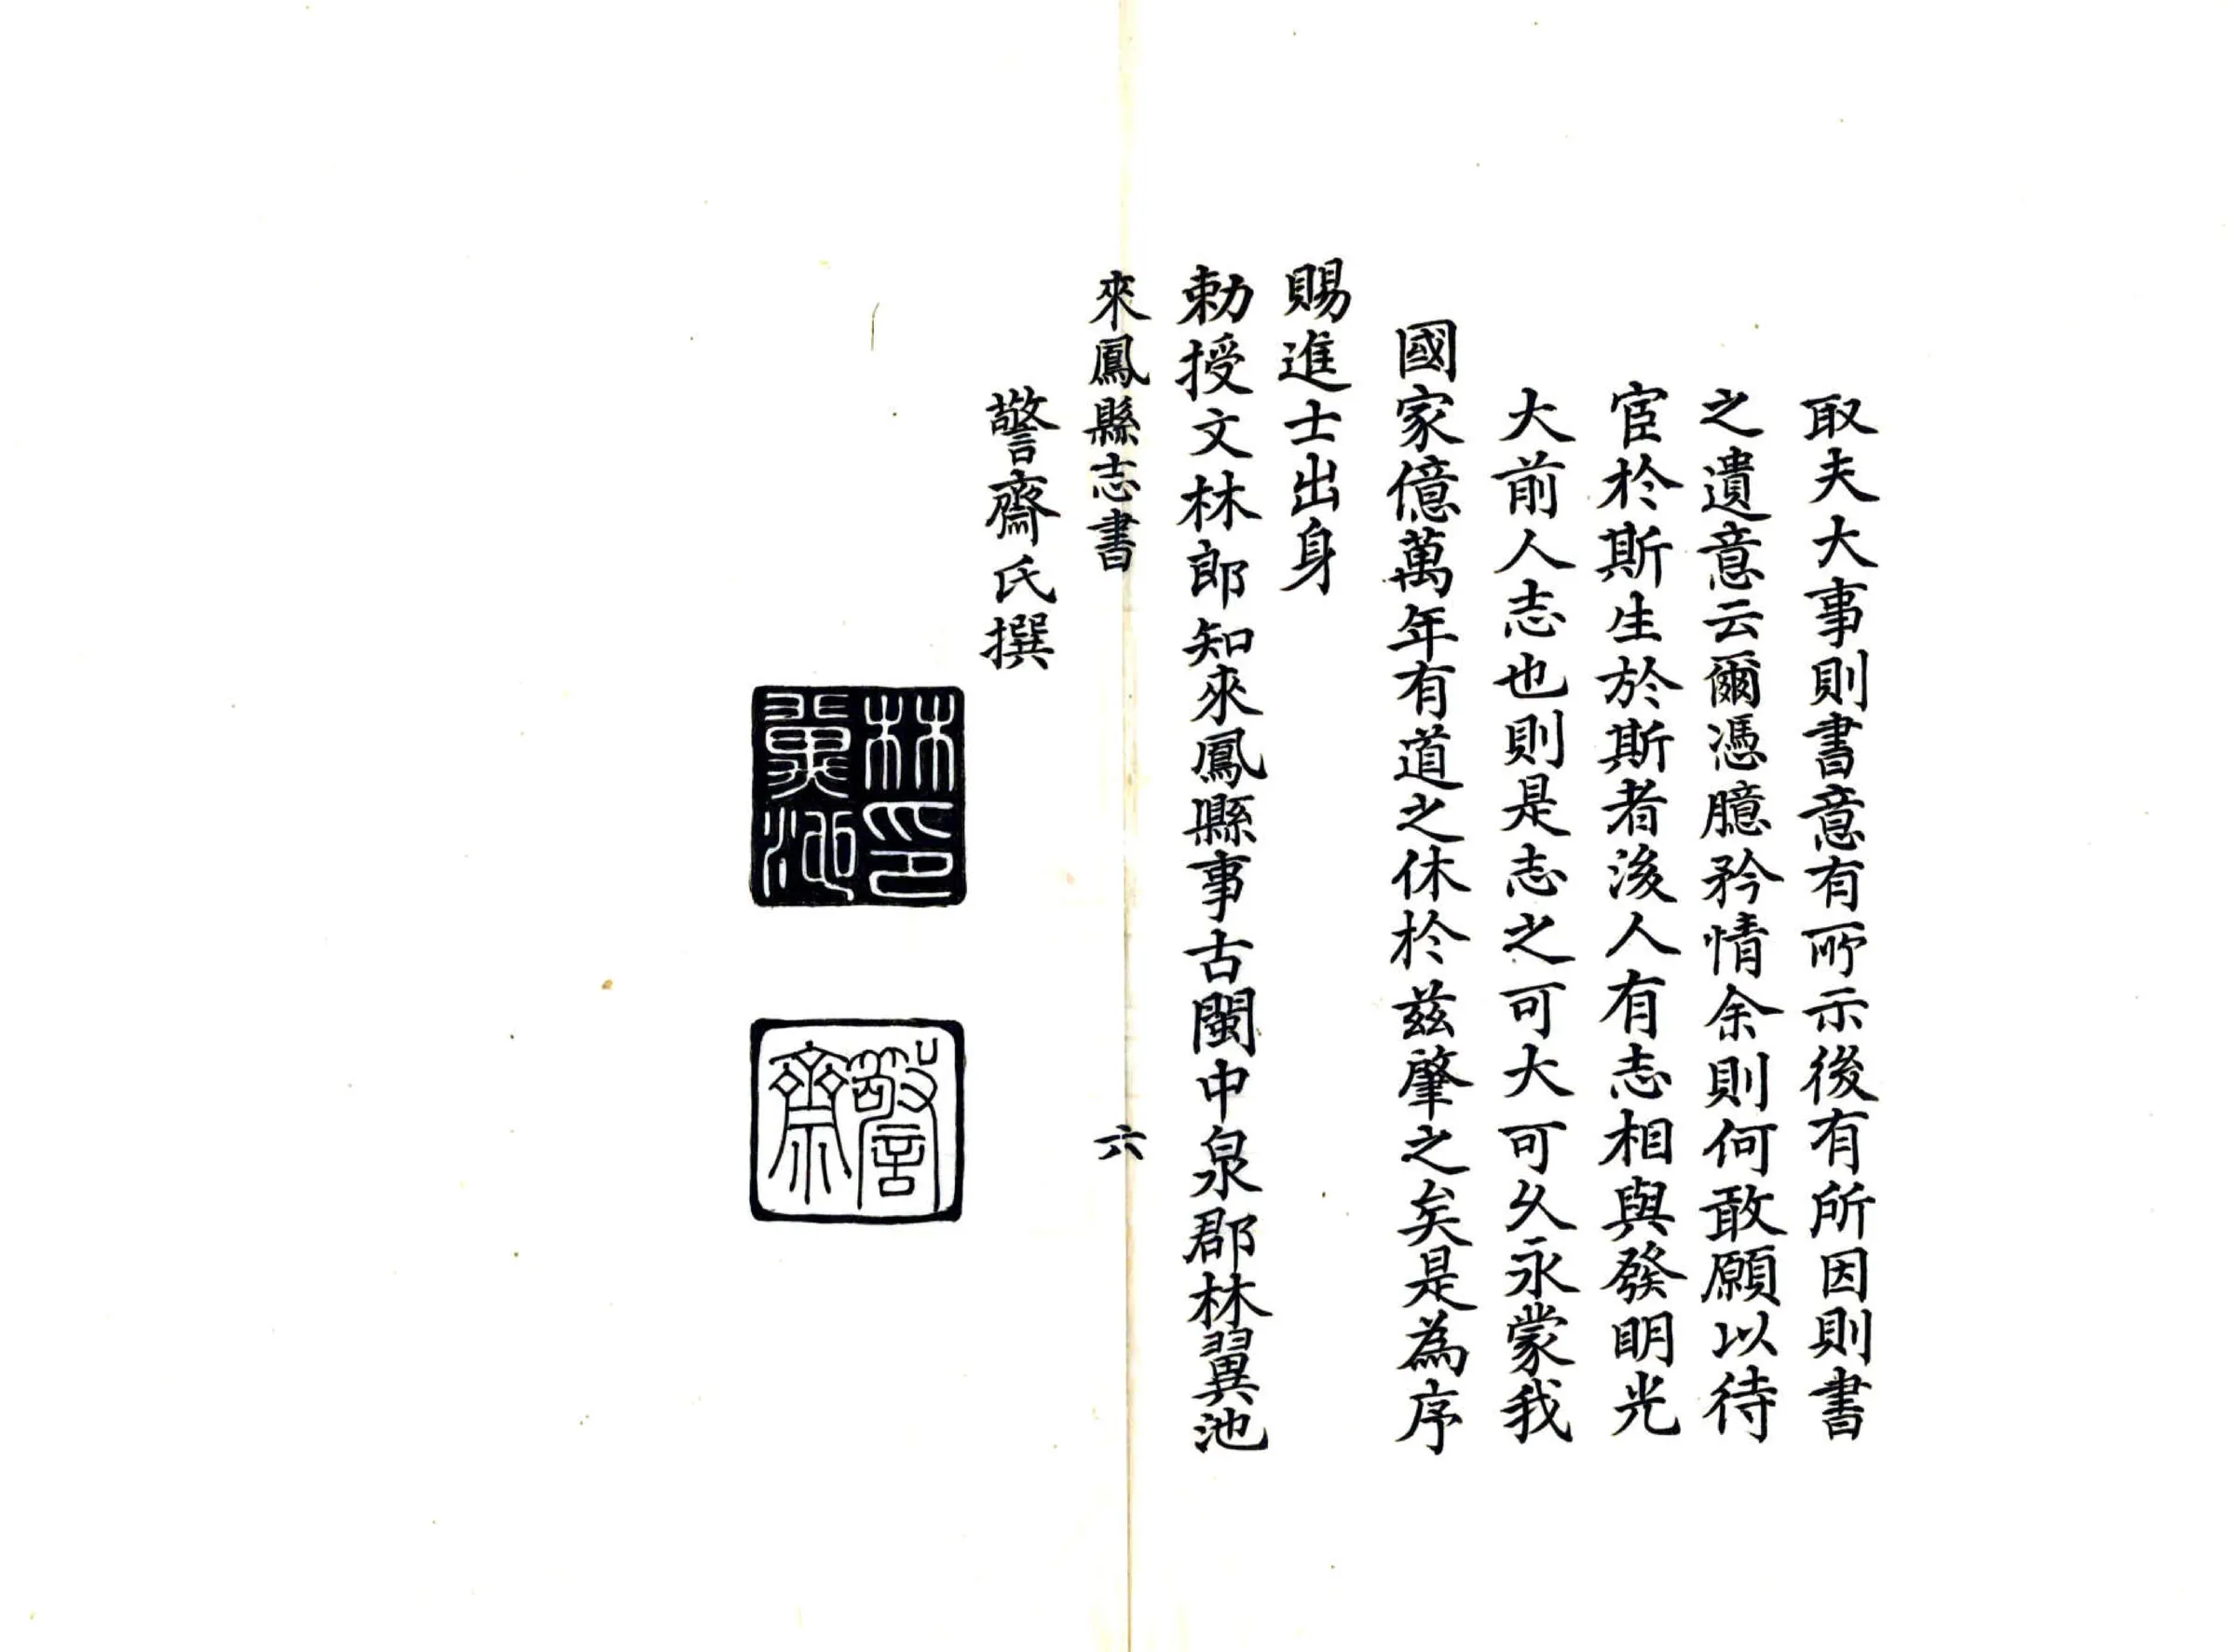 取夫大事則書意有所示後有所因則書
之遺意云爾憑臆矜情余則何敢願以待
宦於斯生於斯者後人有志相與發明光
大前人志也則是志之可大可久永蒙我
國家億萬年有道之休於茲肇之矣是為序
賜進士出身
勅授文林郎知來鳳縣事古閩中泉郡林翼池
來鳳縣志書 六
警齋氏撰
林印翼池
警齋